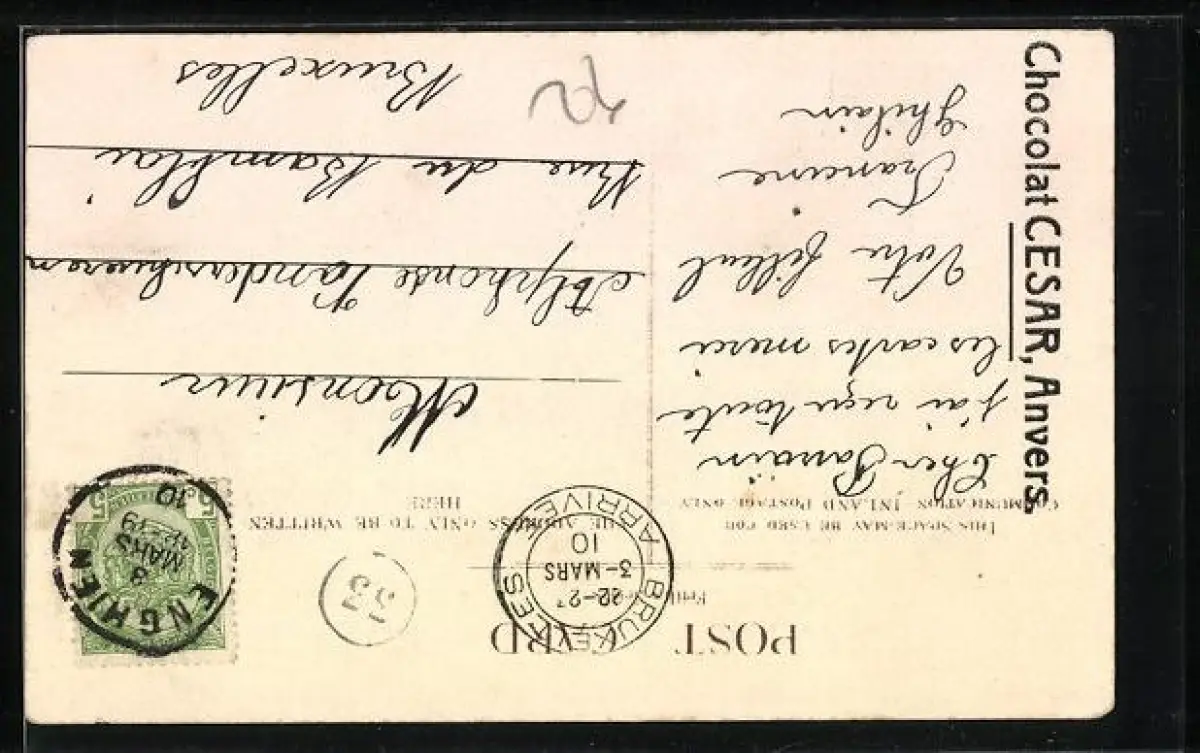 Chocolat CESAR, Anvers.
POST CARD
THIS SPACE MAY BE USED FOR
COMUNICATION INLAND POSTAGE ONLY
THE ADDRESS ONLY TO BE WRITTEN
HERE
Cher Parrain
j'ai reçu toute
les cartes merci
Votre filleul
Francine
Ghilain
Monsieur
Alphonse Vanderschueren
Rue du
Bruxelles
ENGHIEN
3
MARS
18-19
10
5
BRUXELLES
ARRIVE
3-MARS
10
53